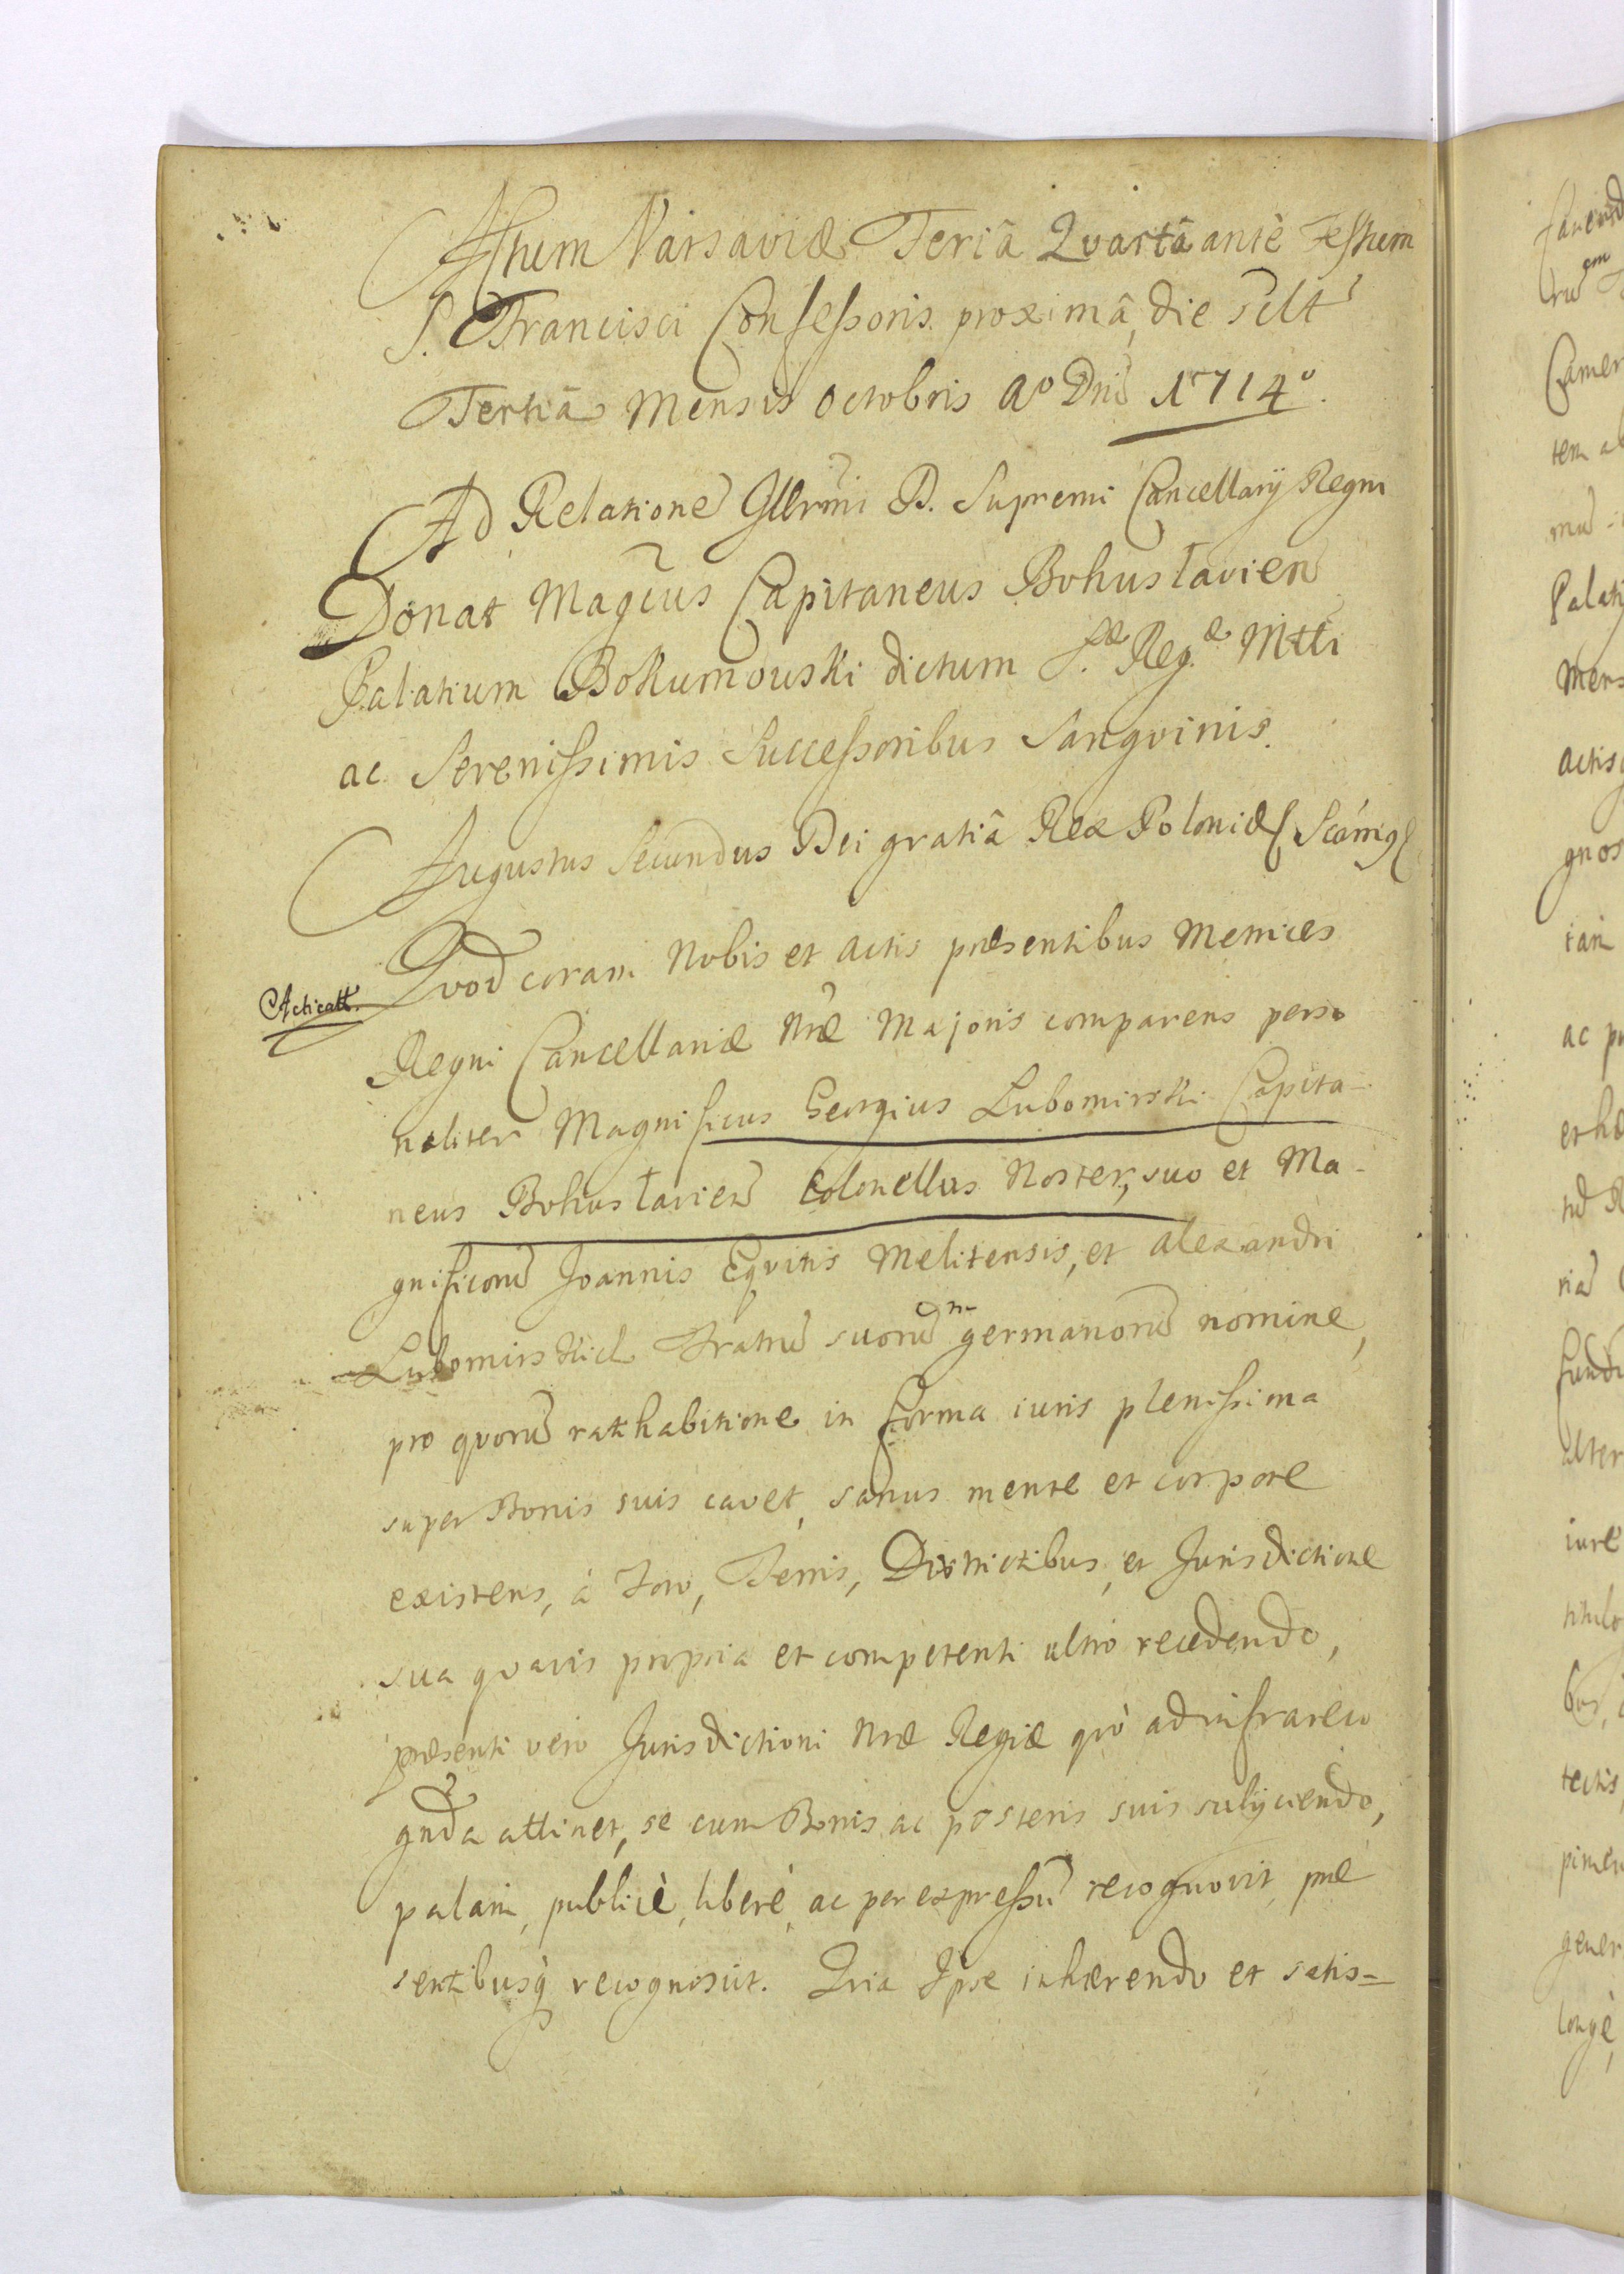 Actum Varsaviæ Feriâ Qvartâ antè Festum
S. Francisci Confessoris proximâ, die Sclt
Tertiâ Mensis Octobris Aº Dni 1714º.
Ad Relatione Illrmi D. Supremi Cancellarij Regni
Donat Magcus Capitaneus Bohusłavien
Palatium Bokumowski dictum S.æ Reg.æ Mtti
ac Serenissimis Successoribus Sangvinis.
Augustus Secundus Dei gratiâ Rex Poloniæ
Qvod coram Nobis et Actis præsentibus Metrices
Acticatt.
Regni Cancellariæ Nræ Majoris comparens perso
naliter Magnificus Georgius Lubomirski Capita-
neus Bohusłavien Colonellus Noster, suo et Ma-
gnificoru Joannis Eqvitis Melitensis, et Alexandri
Lubomirskich Fratru suoru germanoru nomine,
pro qvoru rathabitione in forma iuris plenissima
super Bonis suis cavet, sanus mente et corpore
existens, à Foro, Terris, Districtibus, et Jurisdictione
sua qvavis propria et competenti ultro recedendo,
præsenti vero Jurisdictioni Nræ Regiæ qvò ad infrareco
gnda attinet, se cum Bonis ac posteris suis subijciendo,
palam, publicè, liberè, ac per expressu recognovit, præ
sentibusq recognoscit. Qvia Ipse inhærendo et satis-